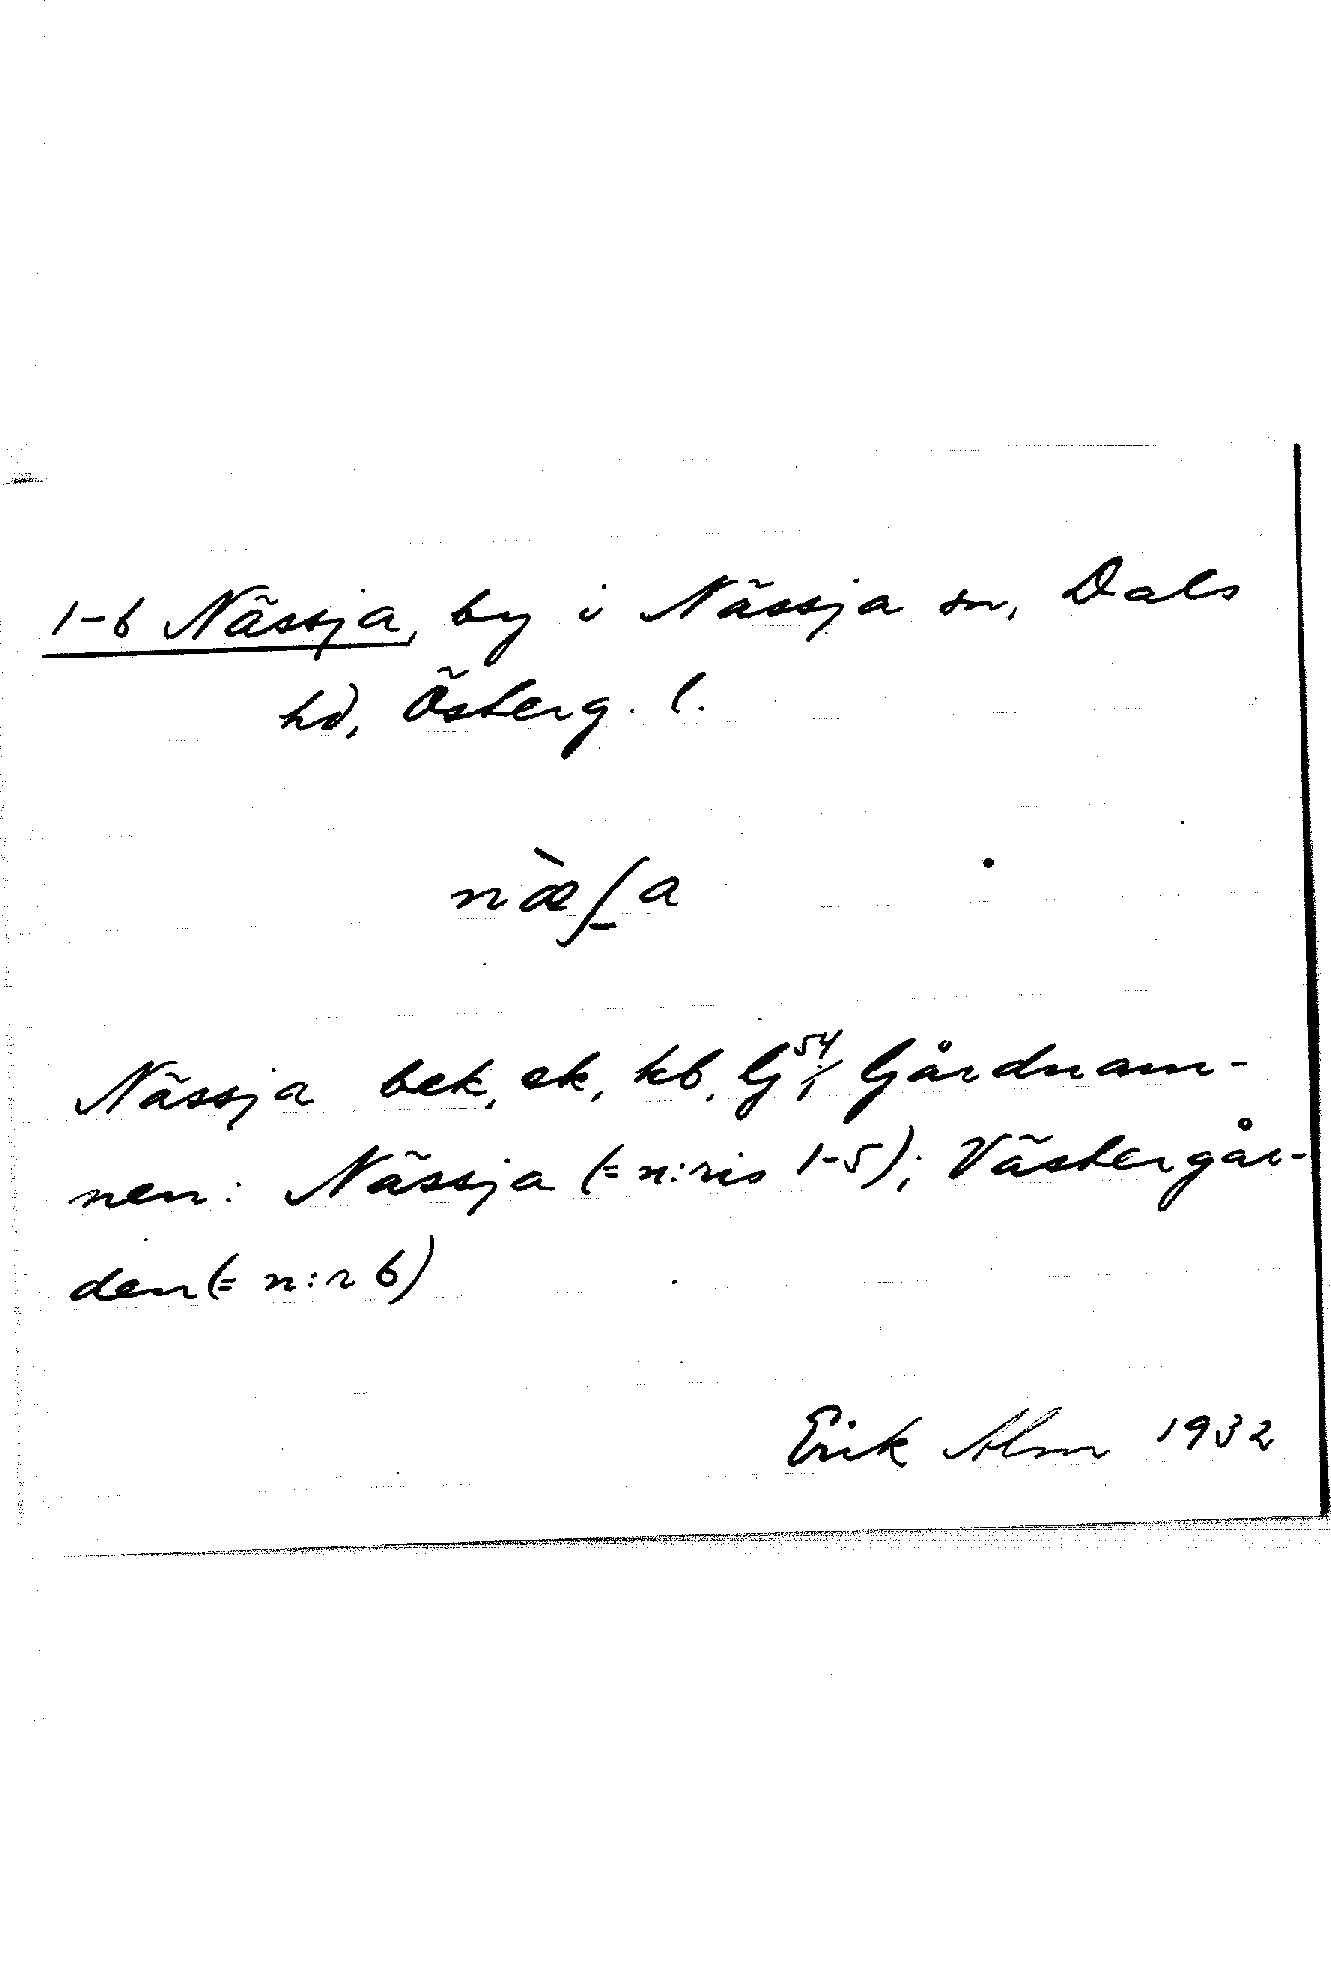 1-6 Nässja, by i Nässja sn, Dals
hd, Österg. l.
næ̀ʃ̱a
Nässja bek, ek, kb, Gj 54/1 Gårdnam-
nen: Nässja (= n:ris 1-5); Västergår-
den (= n:r 6)
Erik Alm 1932